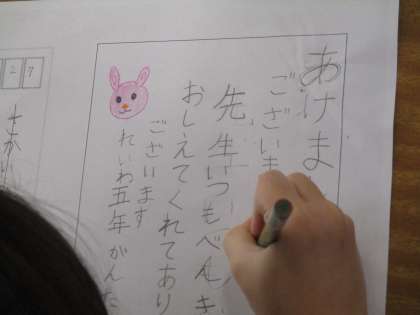 あけま
ございま
先生いつもべんき
おしえてくれてあり
ございます
れいわ五年 がんた
27